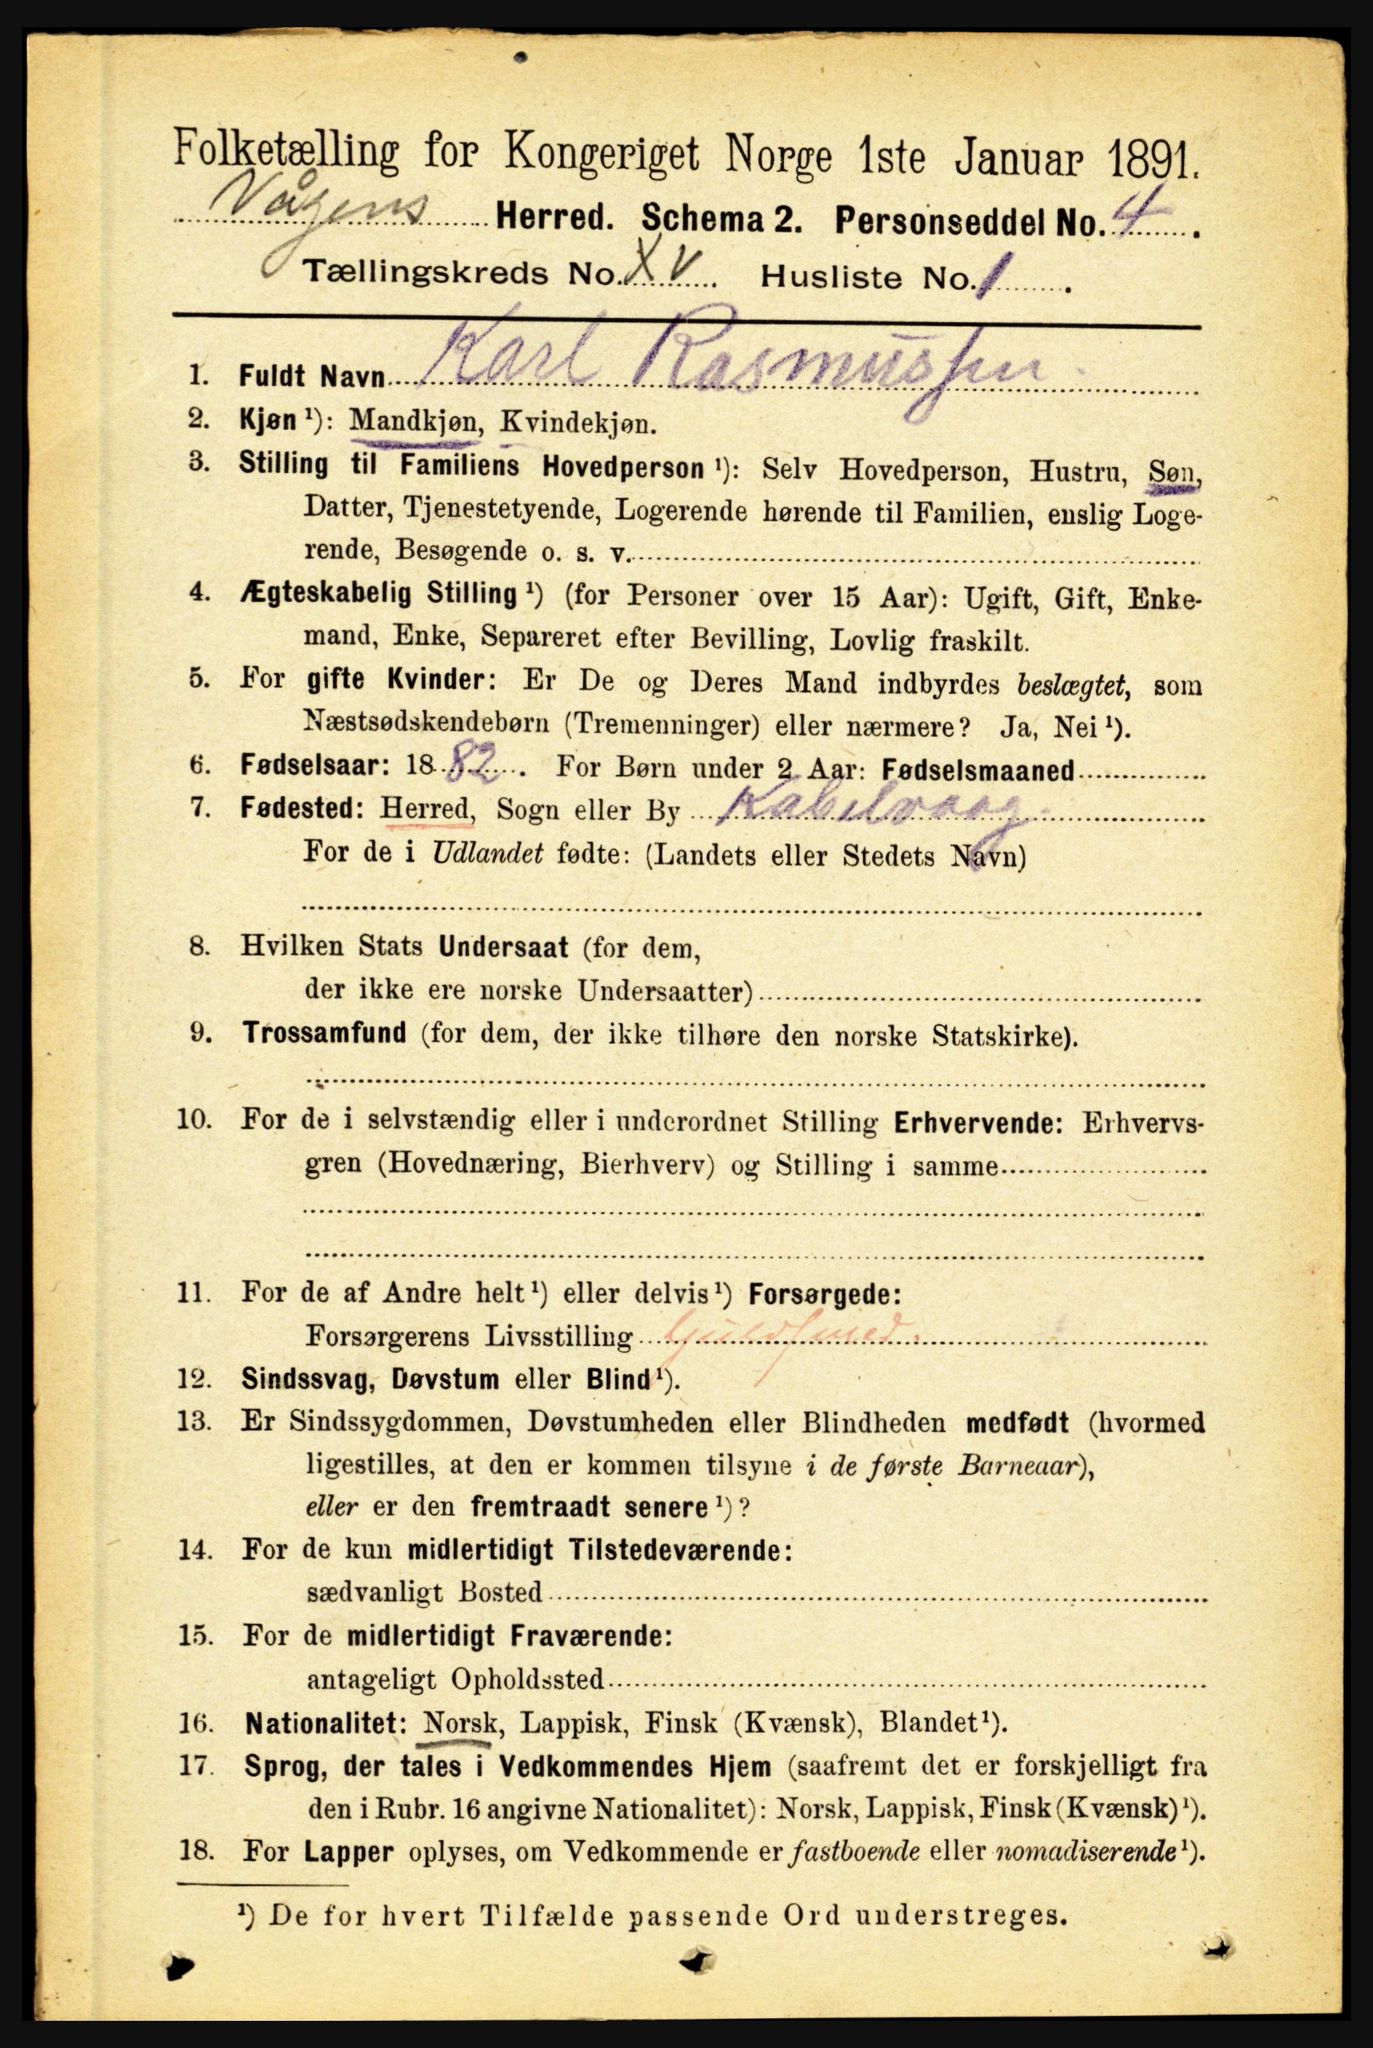 Folketælling for Kongeriget Norge 1ste Januar 1891.
Vågens Herred. Schema 2. Personseddel No. 4.
Tællingskreds No. XV Husliste No. 1.
1. Fuldt Navn Karl Rasmussen
2. Kjøn ¹): Mandkjøn, Kvindekjøn.
3. Stilling til Familiens Hovedperson ¹): Selv Hovedperson, Hustru, Søn,
Datter, Tjenestetyende, Logerende hørende til Familien, enslig Loge-
rende, Besøgende o. s. v.
4. Ægteskabelig Stilling ¹) (for Personer over 15 Aar): Ugift, Gift, Enke-
mand, Enke, Separeret efter Bevilling, Lovlig fraskilt.
5. For gifte Kvinder: Er De og Deres Mand indbyrdes beslægtet, som
Næstsødskendebørn (Tremenninger) eller nærmere? Ja, Nei ¹).
6. Fødselsaar: 1882. For Børn under 2 Aar: Fødselsmaaned
7. Fødested: Herred, Sogn eller By Kabelvaag.
For de i Udlandet fødte: (Landets eller Stedets Navn)
8. Hvilken Stats Undersaat (for dem,
der ikke ere norske Undersaatter)
9. Trossamfund (for dem, der ikke tilhøre den norske Statskirke).
10. For de i selvstændig eller i underordnet Stilling Erhvervende: Erhvervs-
gren (Hovednæring, Bierhverv) og Stilling i samme
11. For de af Andre helt ¹) eller delvis ¹) Forsørgede:
Forsørgerens Livsstilling Guldsmed.
12. Sindssvag, Døvstum eller Blind ¹).
13. Er Sindssygdommen, Døvstumheden eller Blindheden medfødt (hvormed
ligestilles, at den er kommen tilsyne i de første Barneaar),
eller er den fremtraadt senere ¹)?
14. For de kun midlertidigt Tilstedeværende:
sædvanligt Bosted
15. For de midlertidigt Fraværende:
antageligt Opholdssted
16. Nationalitet: Norsk, Lappisk, Finsk (Kvænsk), Blandet ¹).
17. Sprog, der tales i Vedkommendes Hjem (saafremt det er forskjelligt fra
den i Rubr. 16 angivne Nationalitet): Norsk, Lappisk, Finsk (Kvænsk) ¹).
18. For Lapper oplyses, om Vedkommende er fastboende eller nomadiserende ¹).
¹) De for hvert Tilfælde passende Ord understreges.